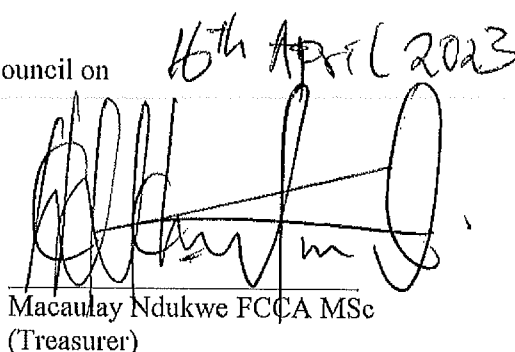 ouncil on 16th April 2023
Macaulay Ndukwe FCCA MSc
(Treasurer)